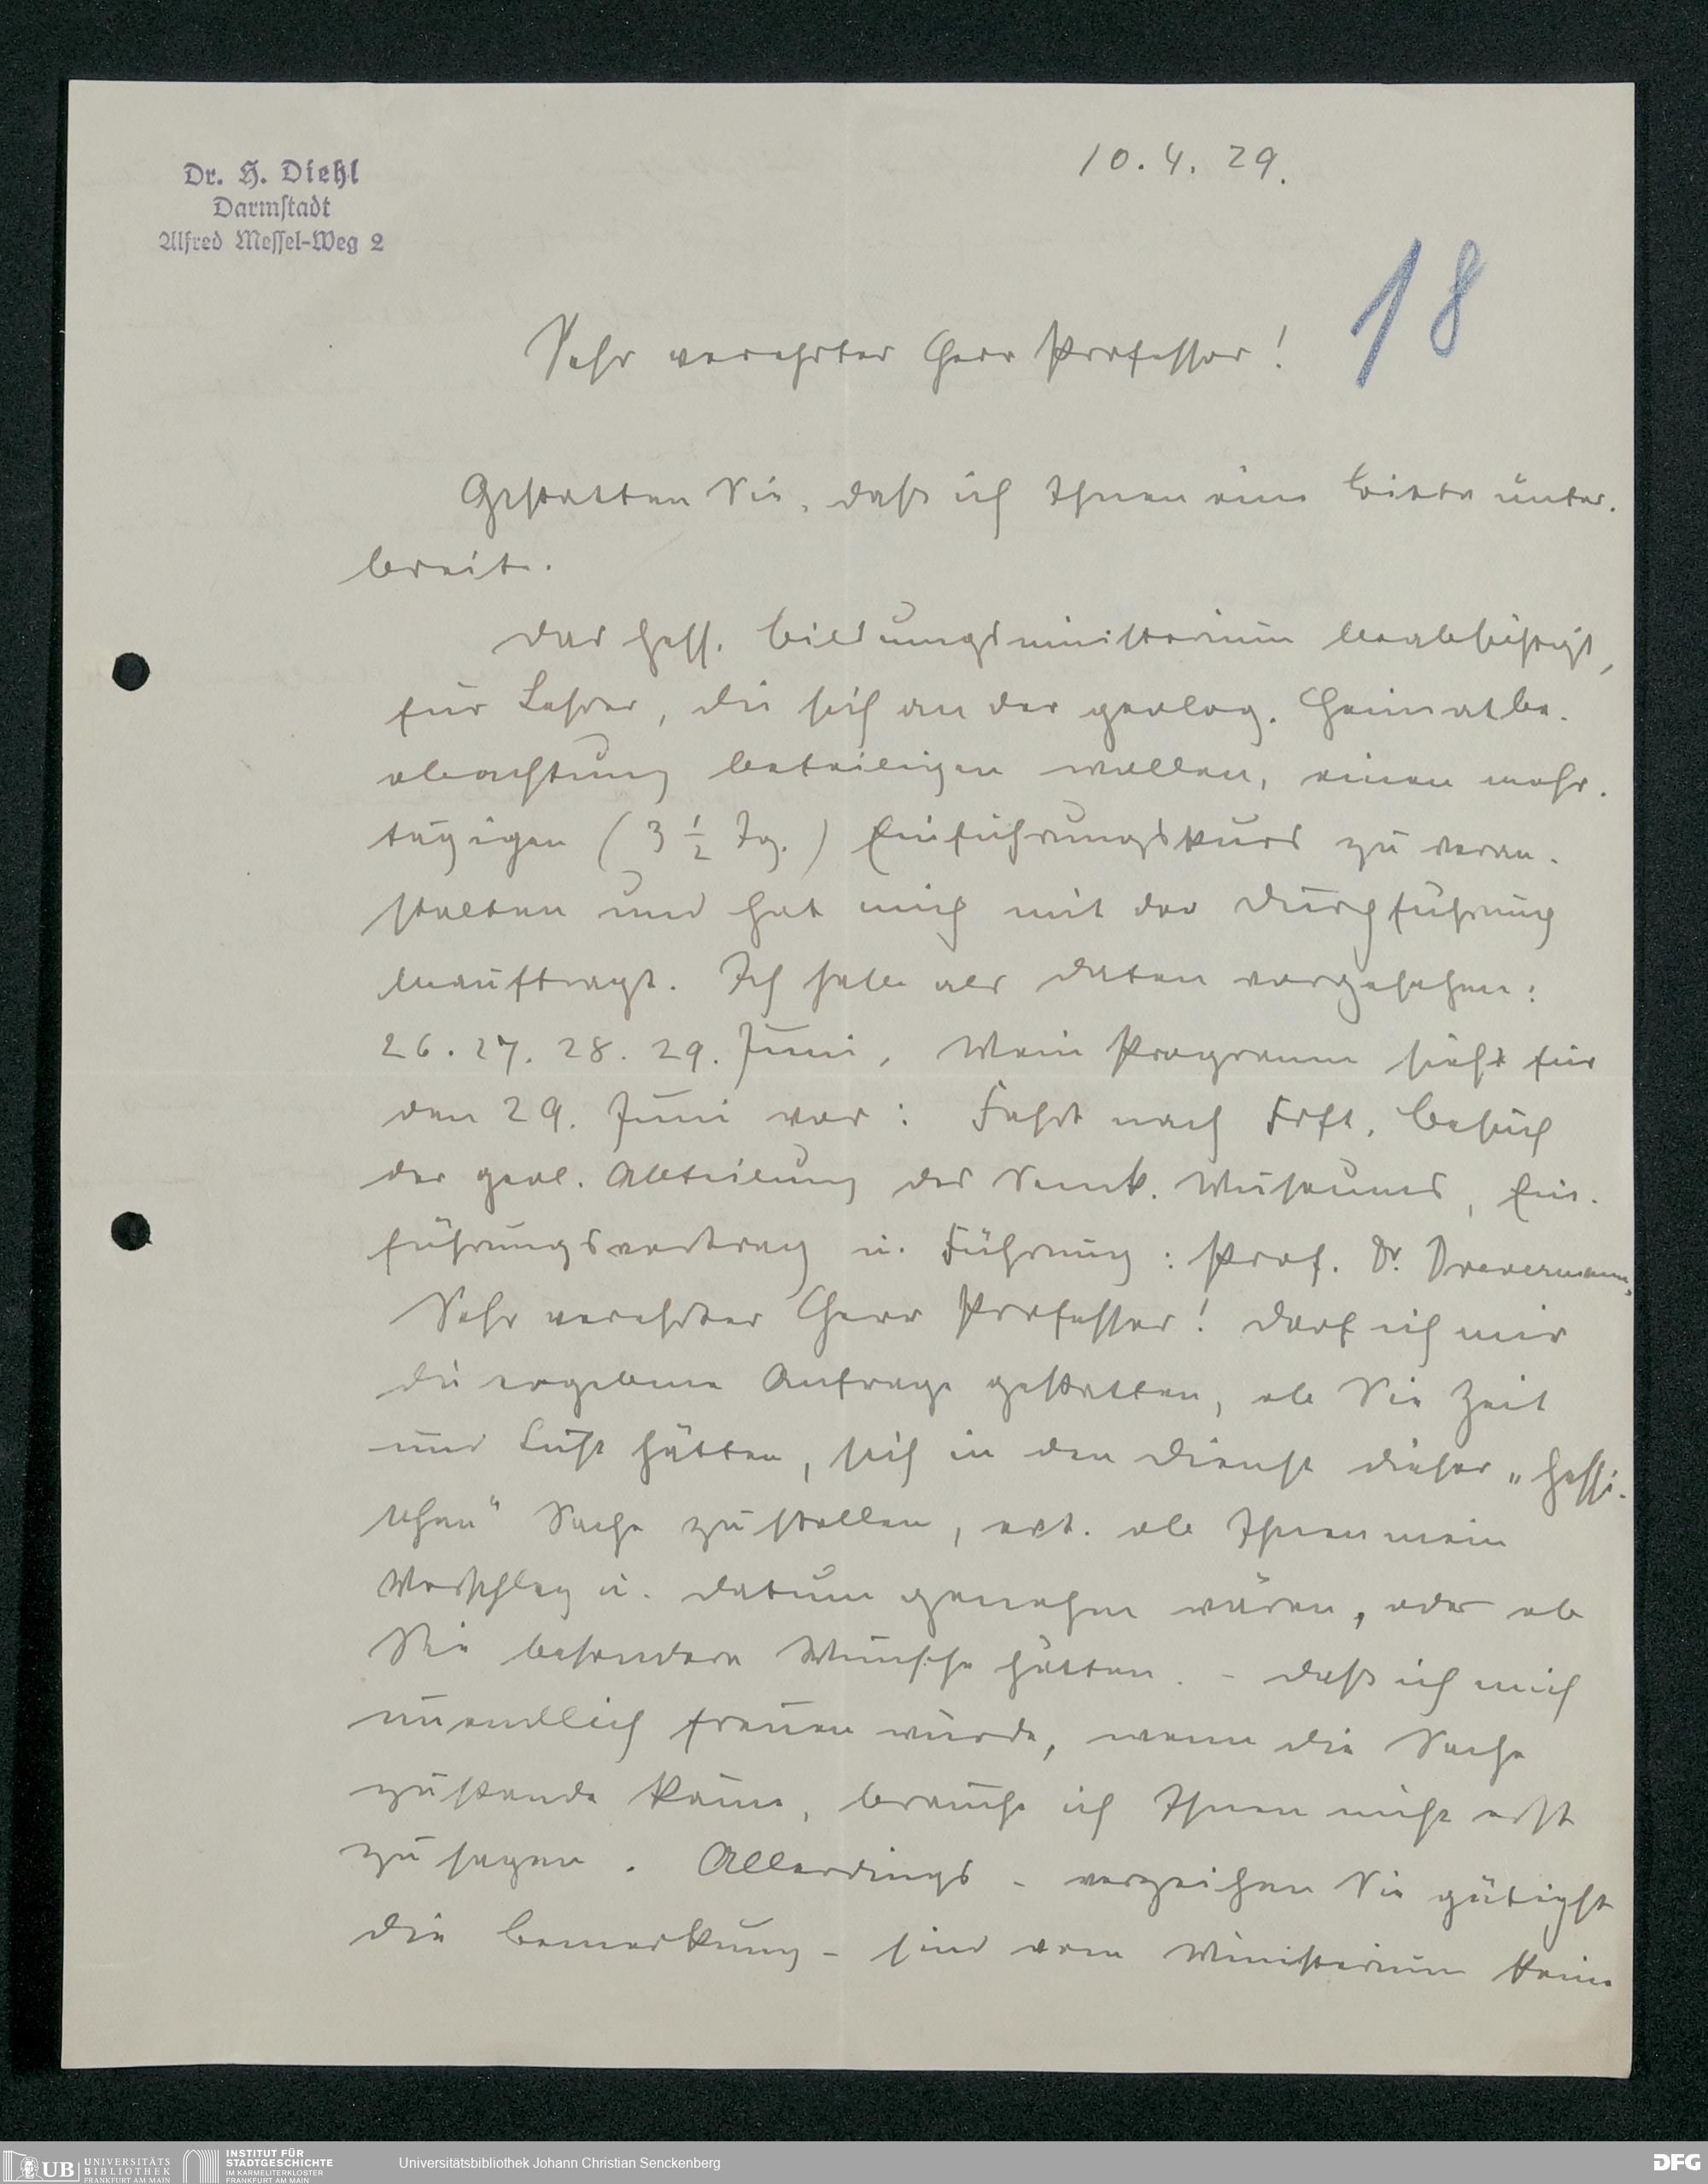 Dr. H. Diehl
Darmstadt
Alfred Messel-Weg 2
10.4.29.
18
Sehr verehrter Herr Professor!
Gestatten Sie, daß ich Ihnen eine Bitte unter-
breite.
Das hess. Bildungsministerium beabsichtigt,
für Lehrer, die sich an der geolog. Heimatbe-
obachtung beteiligen wollen, einen mehr-
tägigen (3 1/2 Tg.) Einführungskurs zu veran-
stalten und hat mich mit der Durchführung
beauftragt. Ich habe als Daten vorgesehen:
26. 27. 28. 29. Juni. Mein Programm sieht für
den 29. Juni vor: Fahrt nach Frft. Besuch
der geol. Abteilung des Senck. Museums, Ein-
führungsvortrag u. Führung: Prof. Dr. Drevermann.
Sehr verehrter Herr Professor! Darf ich mir
die ergebene Anfrage gestatten, ob Sie Zeit
und Lust hätten, sich in den Dienst dieser „hessi-
schen“ Sache zu stellen, evt. ob Ihnen mein
Vorschlag u. Datum genehm wären, oder ob
Sie besondere Wünsche hätten. - Daß ich mich
unendlich freuen würde, wenn die Sache
zustande käme, brauche ich Ihnen nicht erst
zu sagen. Allerdings - verzeihen Sie gütigst
die Bemerkung - sind vom Ministerium keine
UB UNIVERSITÄTS
BIBLIOTHEK
FRANKFURT AM MAIN
INSTITUT FÜR
STADTGESCHICHTE
IM KARMELITERKLOSTER
FRANKFURT AM MAIN
Universitätsbibliothek Johann Christian Senckenberg
DFG